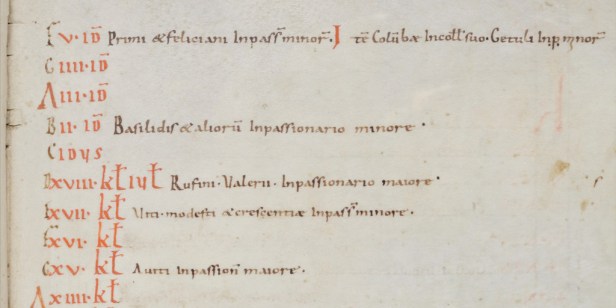 F v · id̄ Primi & feliciani Inpass̄ minor̄ · I tē Colūbae Incoll̄ suo · Getuli Inp̄ minor̄
G iiii · id̄
A iii · id̄
B ii · id̄ Basilidis & aliorū Inpassionario minore ·
C idvs
D xviii · kł iuł Rufini · Valerii · Inpassionario maiore ·
E xvii · kł Viti · modesti & crescentiae Inpass̄ minore ·
F xvi · kł
G xv · kł Auiti Inpassion̄ maiore ·
A xiiii · kł